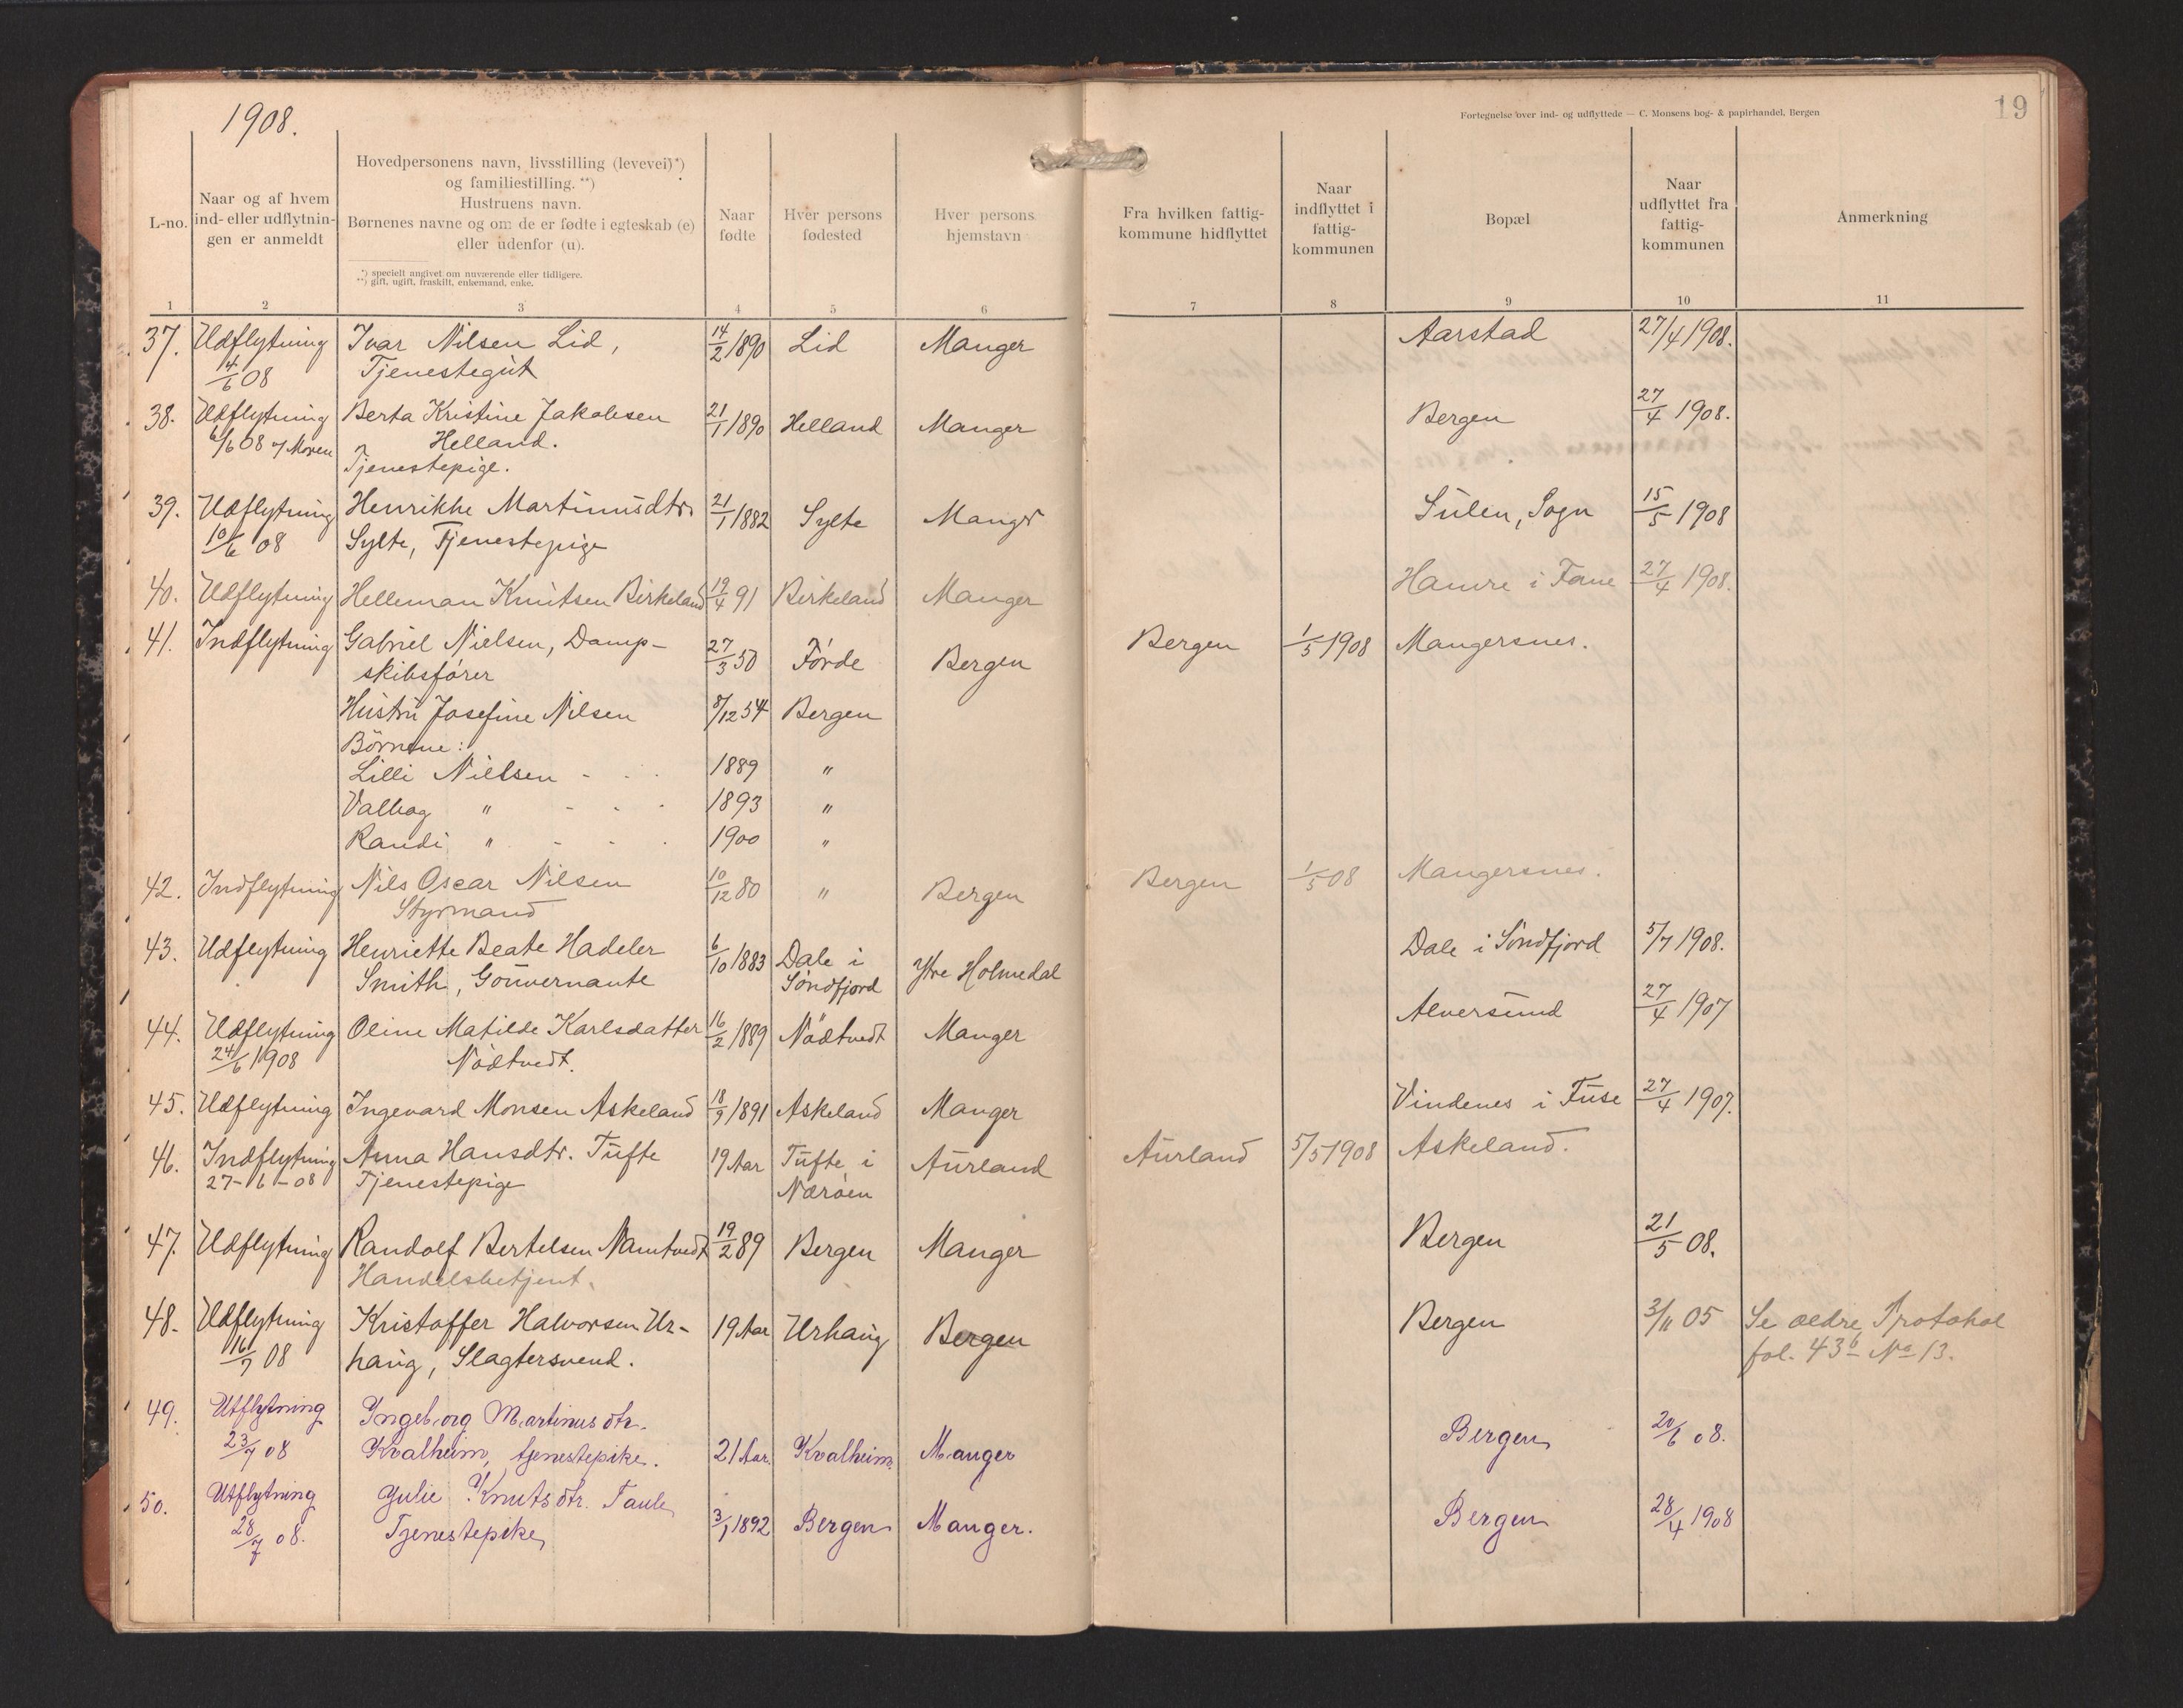 1908.
19
Fortegnelse over ind- og udflyttede — C. Monsens bog- & papirhandel, Bergen
L-no.
Naar og af hvem
ind- eller udflytnin-
gen er anmeldt
Hovedpersonens navn, livsstilling (levevei)*)
og familiestilling. **)
Hustruens navn.
Børnenes navne og om de er fødte i egteskab (e)
eller udenfor (u).
*) specielt angivet om nuværende eller tidligere.
**) gift, ugift, fraskilt, enkemand, enke.
Naar
fødte
Hver persons
fødested
Hver persons
hjemstavn
Fra hvilken fattig-
kommune hidflyttet
Naar
indflyttet i
fattig-
kommunen
Bopæl
Naar
udflyttet fra
fattig-
kommunen
Anmerkning
1 2 3 4 5 6 7 8 9 10 11
37. Udflytning Ivar Nilsen Lid, 14/2 1890 Lid Manger Aarstad 27/4 1908.
14/6 08 Tjenestegut
38. Udflytning Berta Kristine Jakobsen 21/1 1890 Helland Manger Bergen 27/4 1908.
6/6 08 Moren Helland.
Tjenestepige.
39. Udflytning Henrikke Martinusdtr. 21/1 1882 Sylte Manger Sulen, Sogn 15/5 1908
10/6 08 Sylte, Tjenestepige
40. Udflytning Helleman Knutsen Birkeland 19/4 91 Birkeland Manger Hamre i Fane 27/4 1908.
41. Indflytning Gabriel Nielsen, Damp- 27/3 50 Førde Bergen Bergen 1/5 1908 Mangersnes.
skibsfører
Hustru Josefine Nilsen 8/12 54 Bergen
Børnene:
Lilli Nielsen - - - 1889 "
Valbog " - - - 1893 "
Randi " - - - 1900 "
42. Indflytning Nils Oscar Nilsen 10/12 80 " Bergen Bergen 1/5 08 Mangersnes.
Styrmand
43. Udflytning Henriette Beate Hadeler 6/10 1883 Dale i Ytre Holmedal Dale i Søndfjord 5/7 1908.
Smith, Gouvernante Søndfjord
44. Udflytning Oline Matilde Karlsdatter 16/2 1889 Nödtvedt Manger Alversund 27/4 1907
24/6 1908 Nödtvedt.
45. Udflytning Ingevard Monsen Askeland 18/9 1891 Askeland Manger Vindenes i Fuse 27/4 1907.
46. Indflytning Anna Hansdtr. Tufte 19 Aar Tufte i Aurland Aurland 5/5 1908 Askeland.
27-6-08 Tjenestepige Nærøen
47. Udflytning Randolf Bertelsen Namtvedt 19/2 89 Bergen Manger Bergen 21/5 08.
Handelsbetjent.
48. Udflytning Kristoffer Halvorsen Ur- 19 Aar Urhaug Bergen Bergen 3/11 05 Se ældre Protokol
16/7 08 haug, Slagtersvend. fol. 43b No 13.
49. Utflytning Ingeborg Martinusdtr.
23/7 08 Kvalheim, tjenestepike. 21 Aar. Kvalheim. Manger Bergen 20/6 08.
50. Utflytning Julie Knutsdtr. Taule
28/7 08. Tjenestepike, 3/1 1892 Bergen Manger. Bergen 28/4 1908